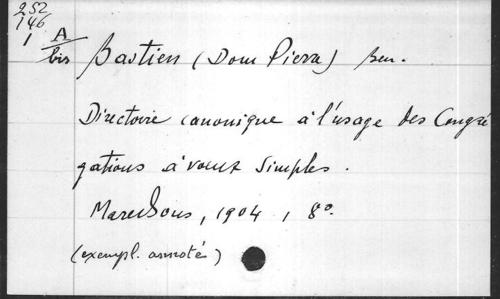 252
146
1 A
bis
Bastien (Dom Pierre) Ben.
Directoire canonique à l'usage des Congré
gations à voeux simples.
Maredsous, 1904, 8°.
(exempl. annoté)